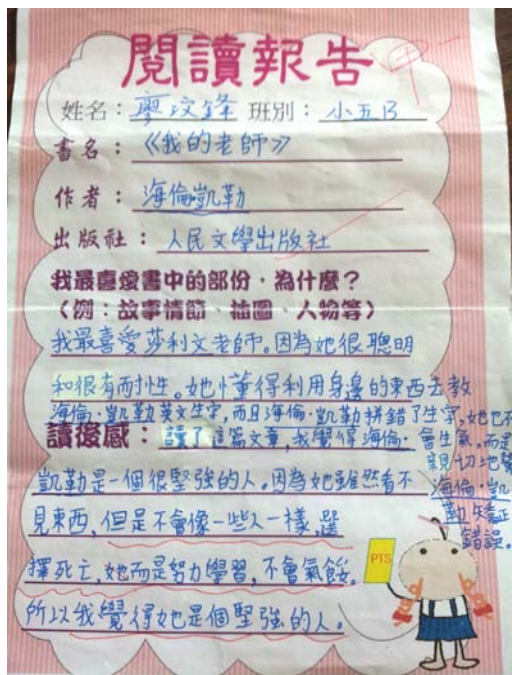 閱讀報告
甲
姓名：廖汶鋒 班別：小五B
書名：《我的老師》
作者：海倫凱勒
出版社：人民文學出版社
我最喜愛書中的部份，為什麼？
（例：故事情節、插圖、人物等）
我最喜愛莎利文老師。因為她很聰明
和很有耐性。她懂得利用身邊的東西去教
海倫·凱勒英文生字，而且海倫·凱勒拼錯了生字，她也不
會生氣，而是
親切地幫
海倫·凱
勒矯正
錯誤。
讀後感：讀了這篇文章，我覺得海倫·
凱勒是一個很堅強的人。因為她雖然看不
見東西，但是不會像一些人一樣，選
擇死亡，她而是努力學習，不會氣餒。
所以我覺得她是個堅強的人。
PTS